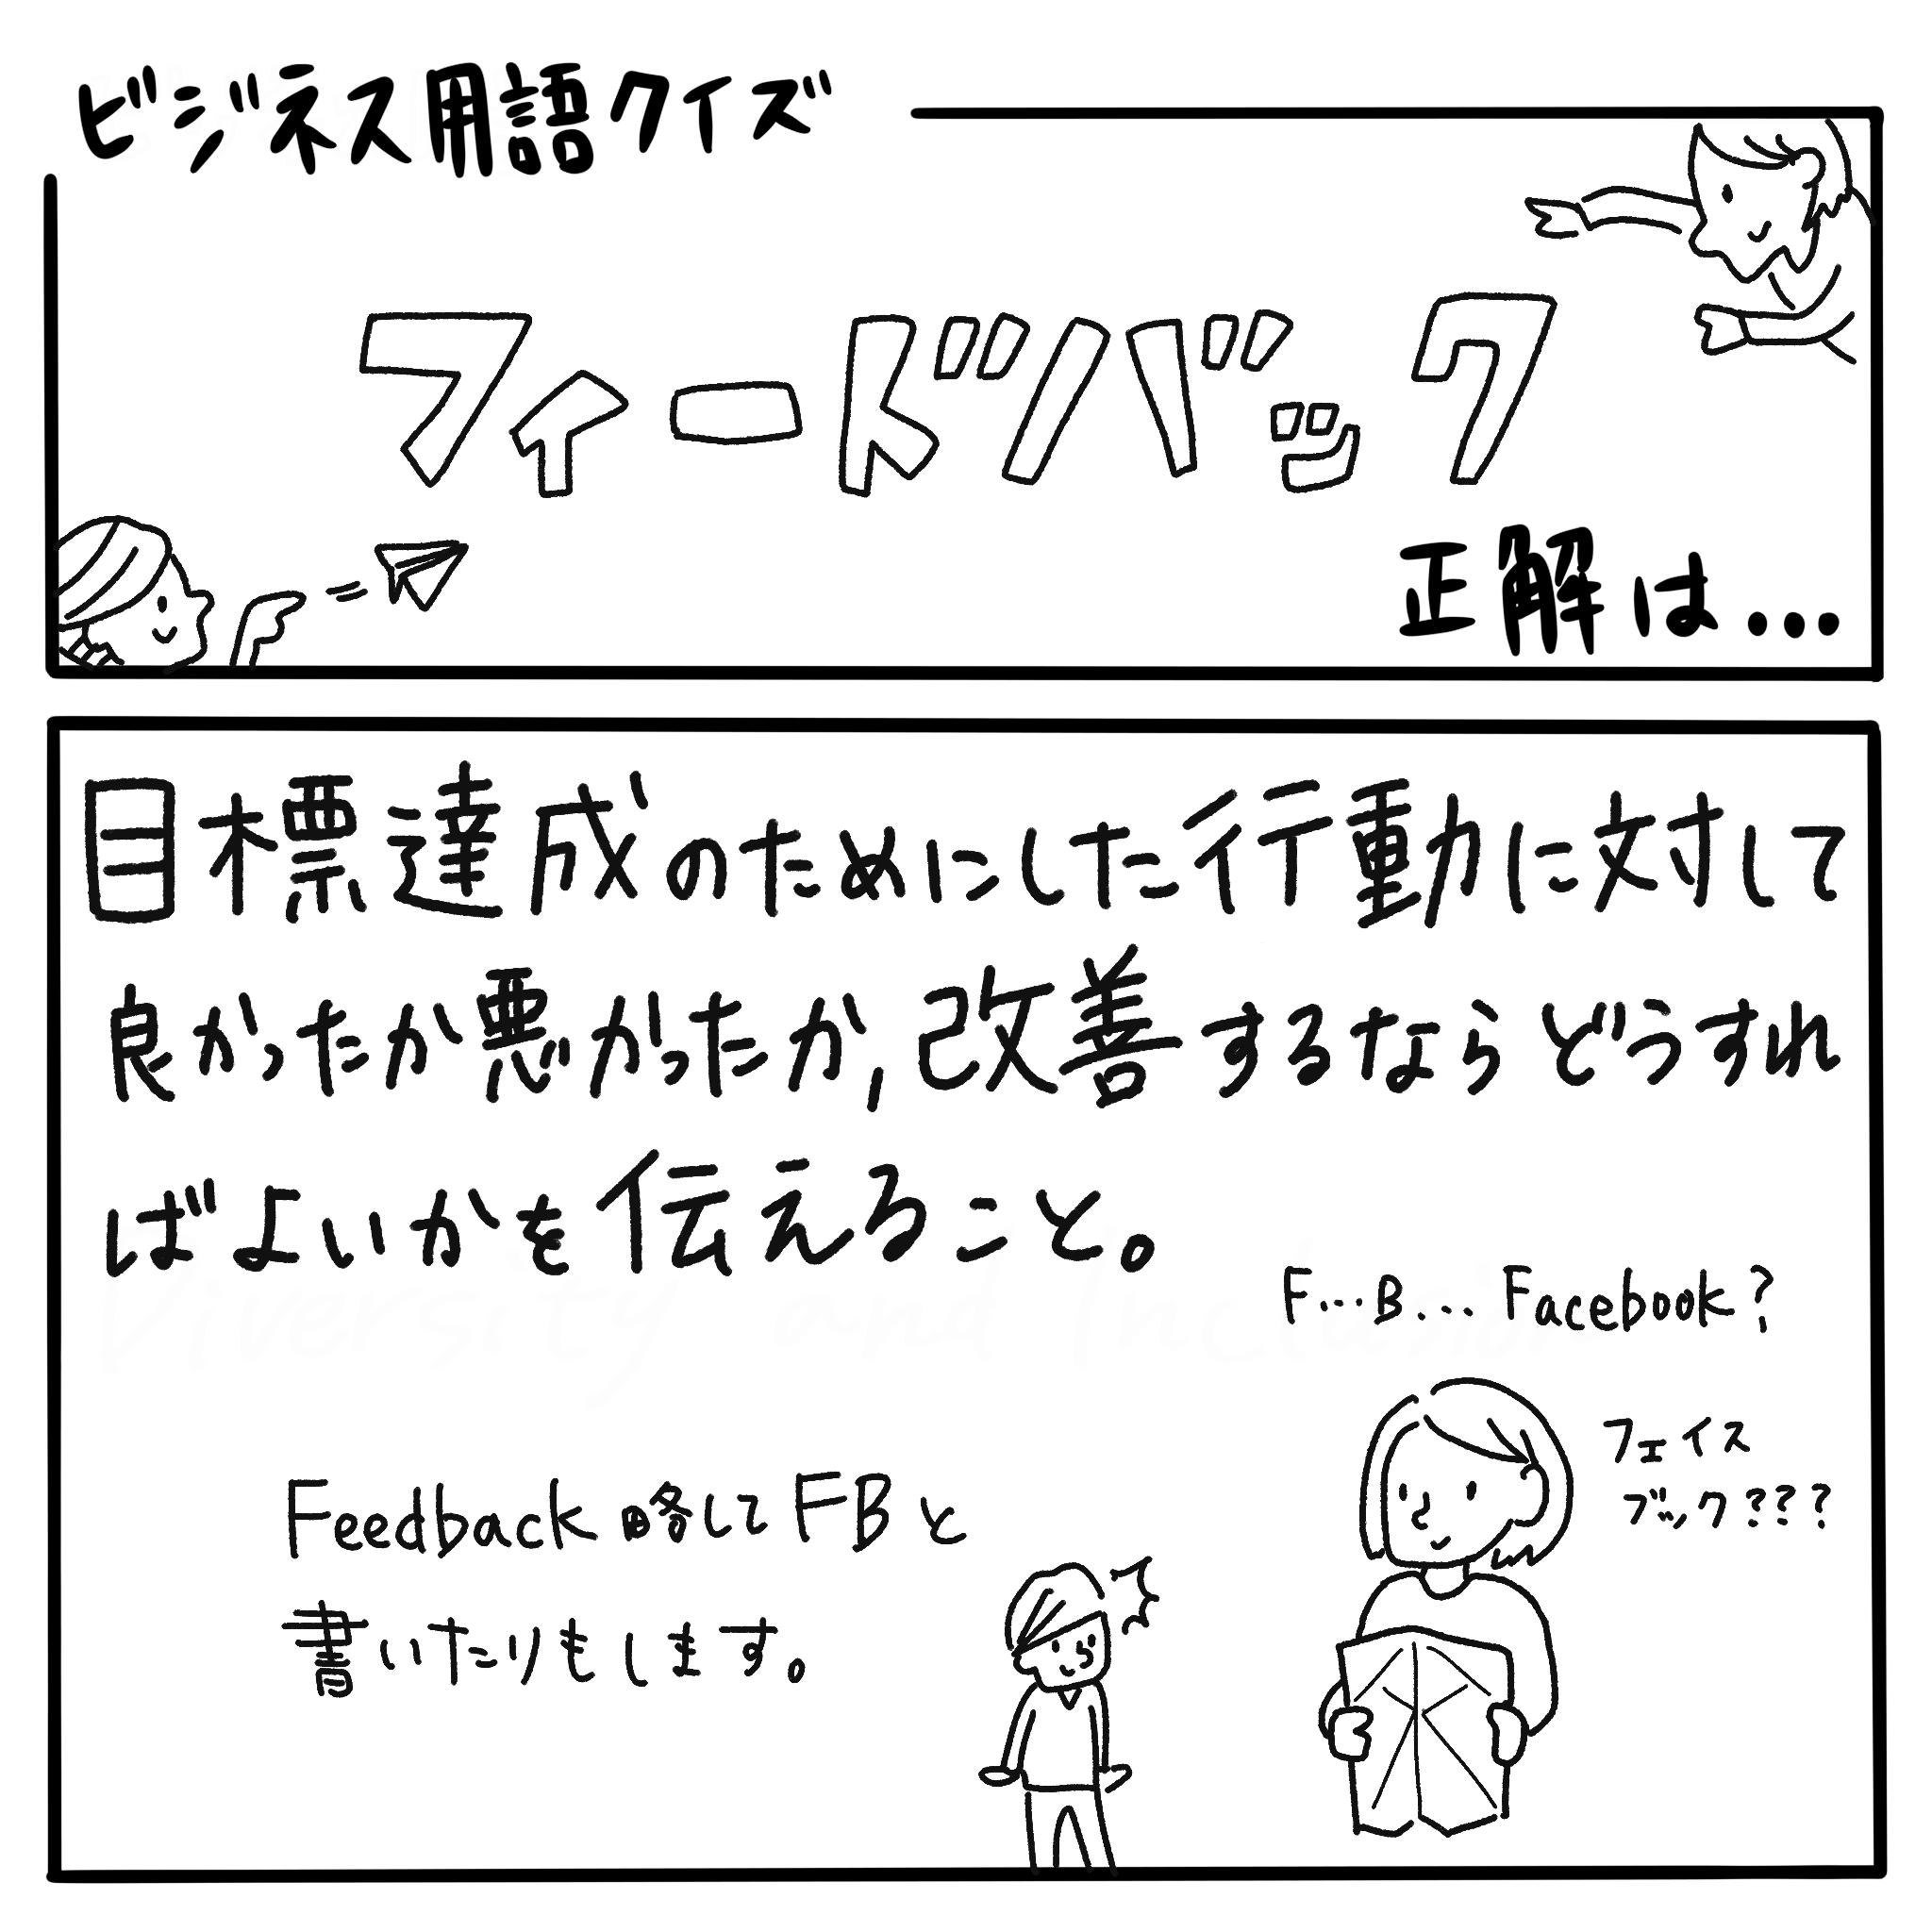 ビジネス用語クイズ
フィードバック
正解は...
目標達成のためにした行動に対して
良かったか悪かったか,改善するならどうすれ
ばよいかを伝えること。
F...B... Facebook?
フェイス
ブック???
Feedback 略してFBと
書いたりもします。